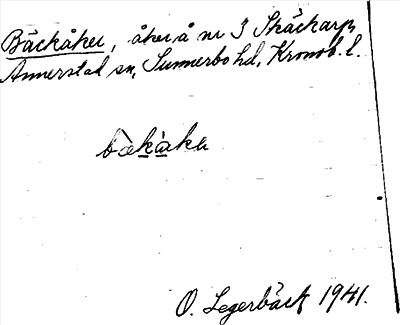 Bäckåker, åker å nr 3 Skäckarp,
Annerstad sn, Sunnerbo hd, Kronob. l.
O. Legerbäck 1941.